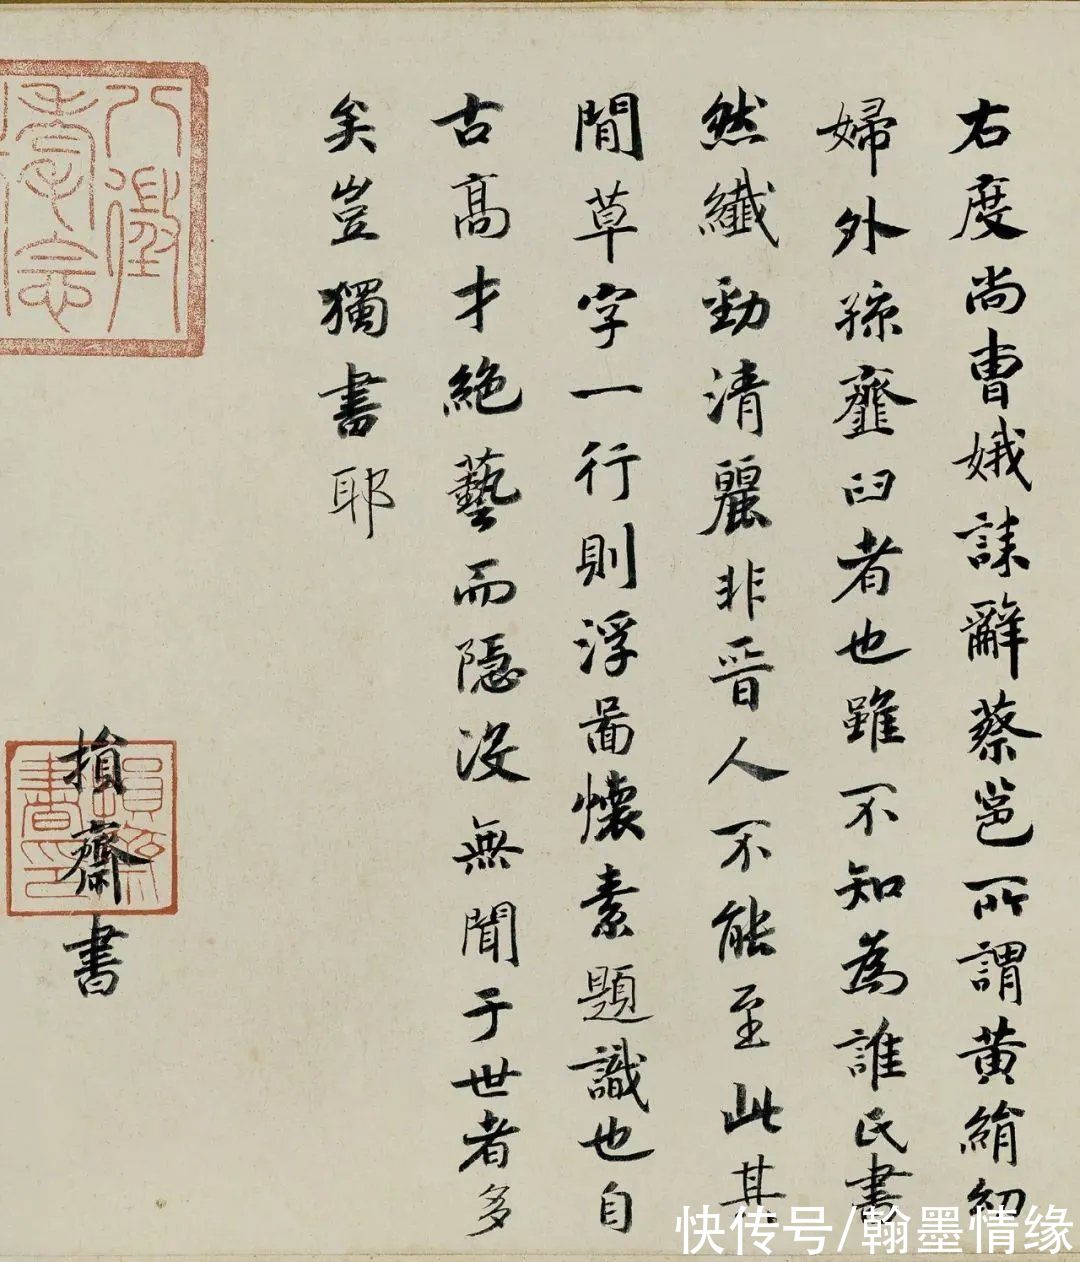 右度尚曹娥誄辭蔡邕所謂黄絹幼
婦外孫齏臼者也雖不知為誰氏書
然纖勁清麗非晉人不能至此其
閒草字一行則浮圖懷素題識也自
古高才絕藝而隱没無聞于世者多
矣豈獨書耶
八徵耄念
損齋書
損齋書印
快传号/翰墨情缘